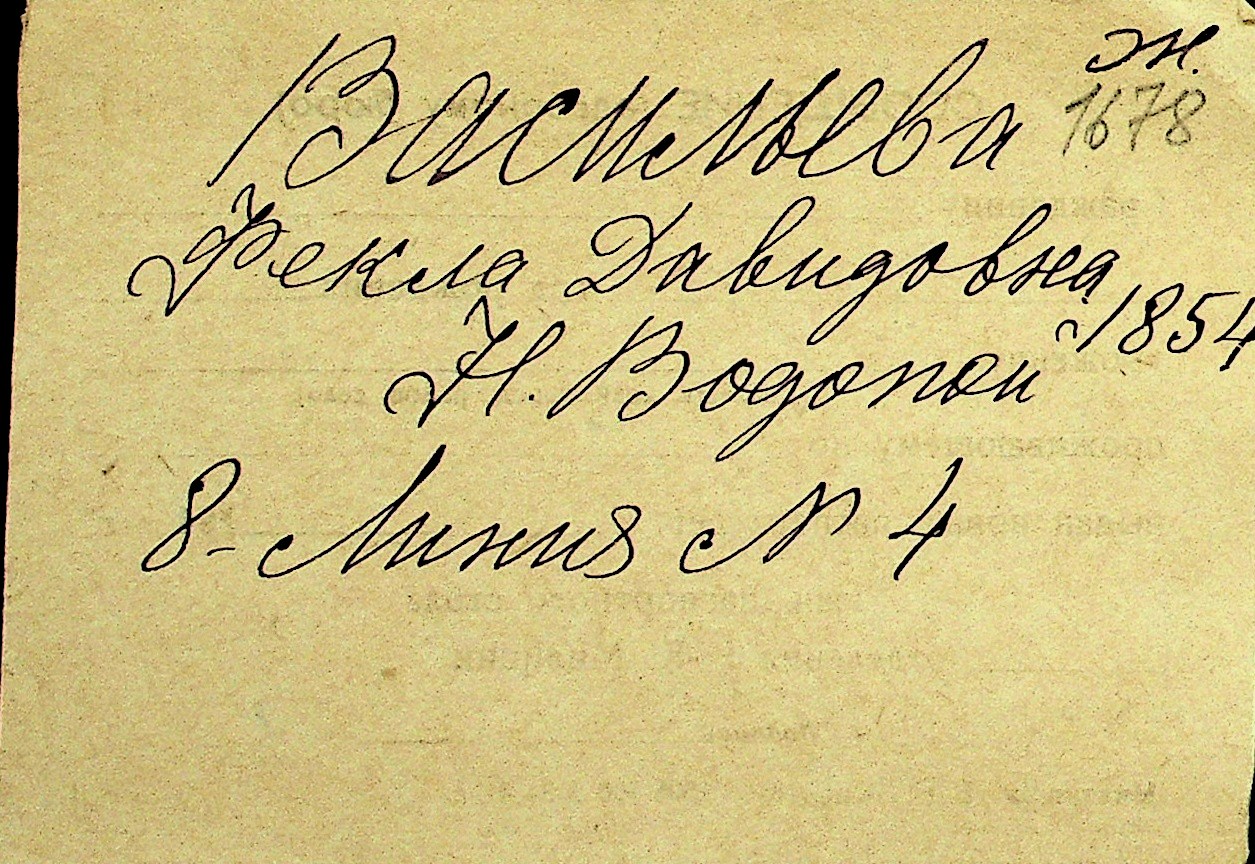 Васильева ж.
1678
Фекла Давидовна
1854
Н. Водопой
8-Линия N 4